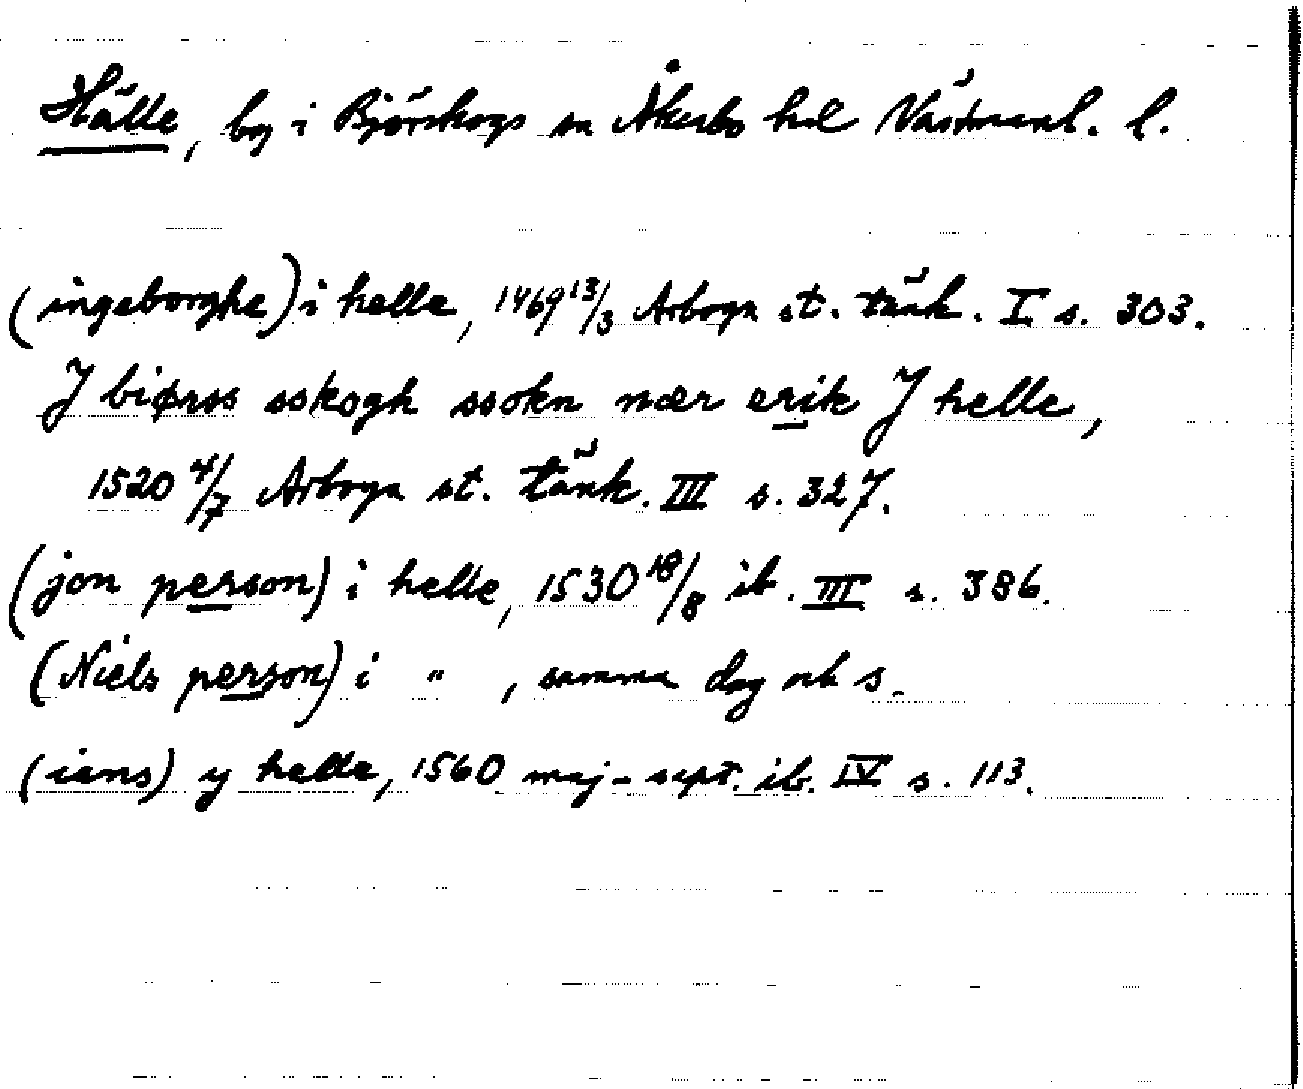 Hälle, by i Björskogs sn Åkerbo hd Västmanl. l.
(ingeborghe) i helle, 1469 13/3 Arboga st. tänk. I s. 303.
J biørss sskogh ssokn nær erik J helle,
1520 4/7 Arboga st. tänk. III s. 327.
(jon person) i helle, 1530 18/8 ib. III s. 386.
(Niels person) i " , samma dag och s.
(iens) y helle, 1560 maj-sept. ib. IV s. 113.